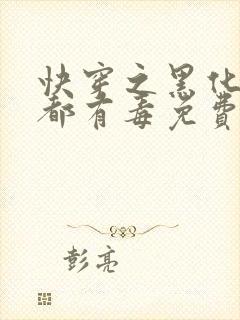 快穿之黑化
都有毒免费
彭亮